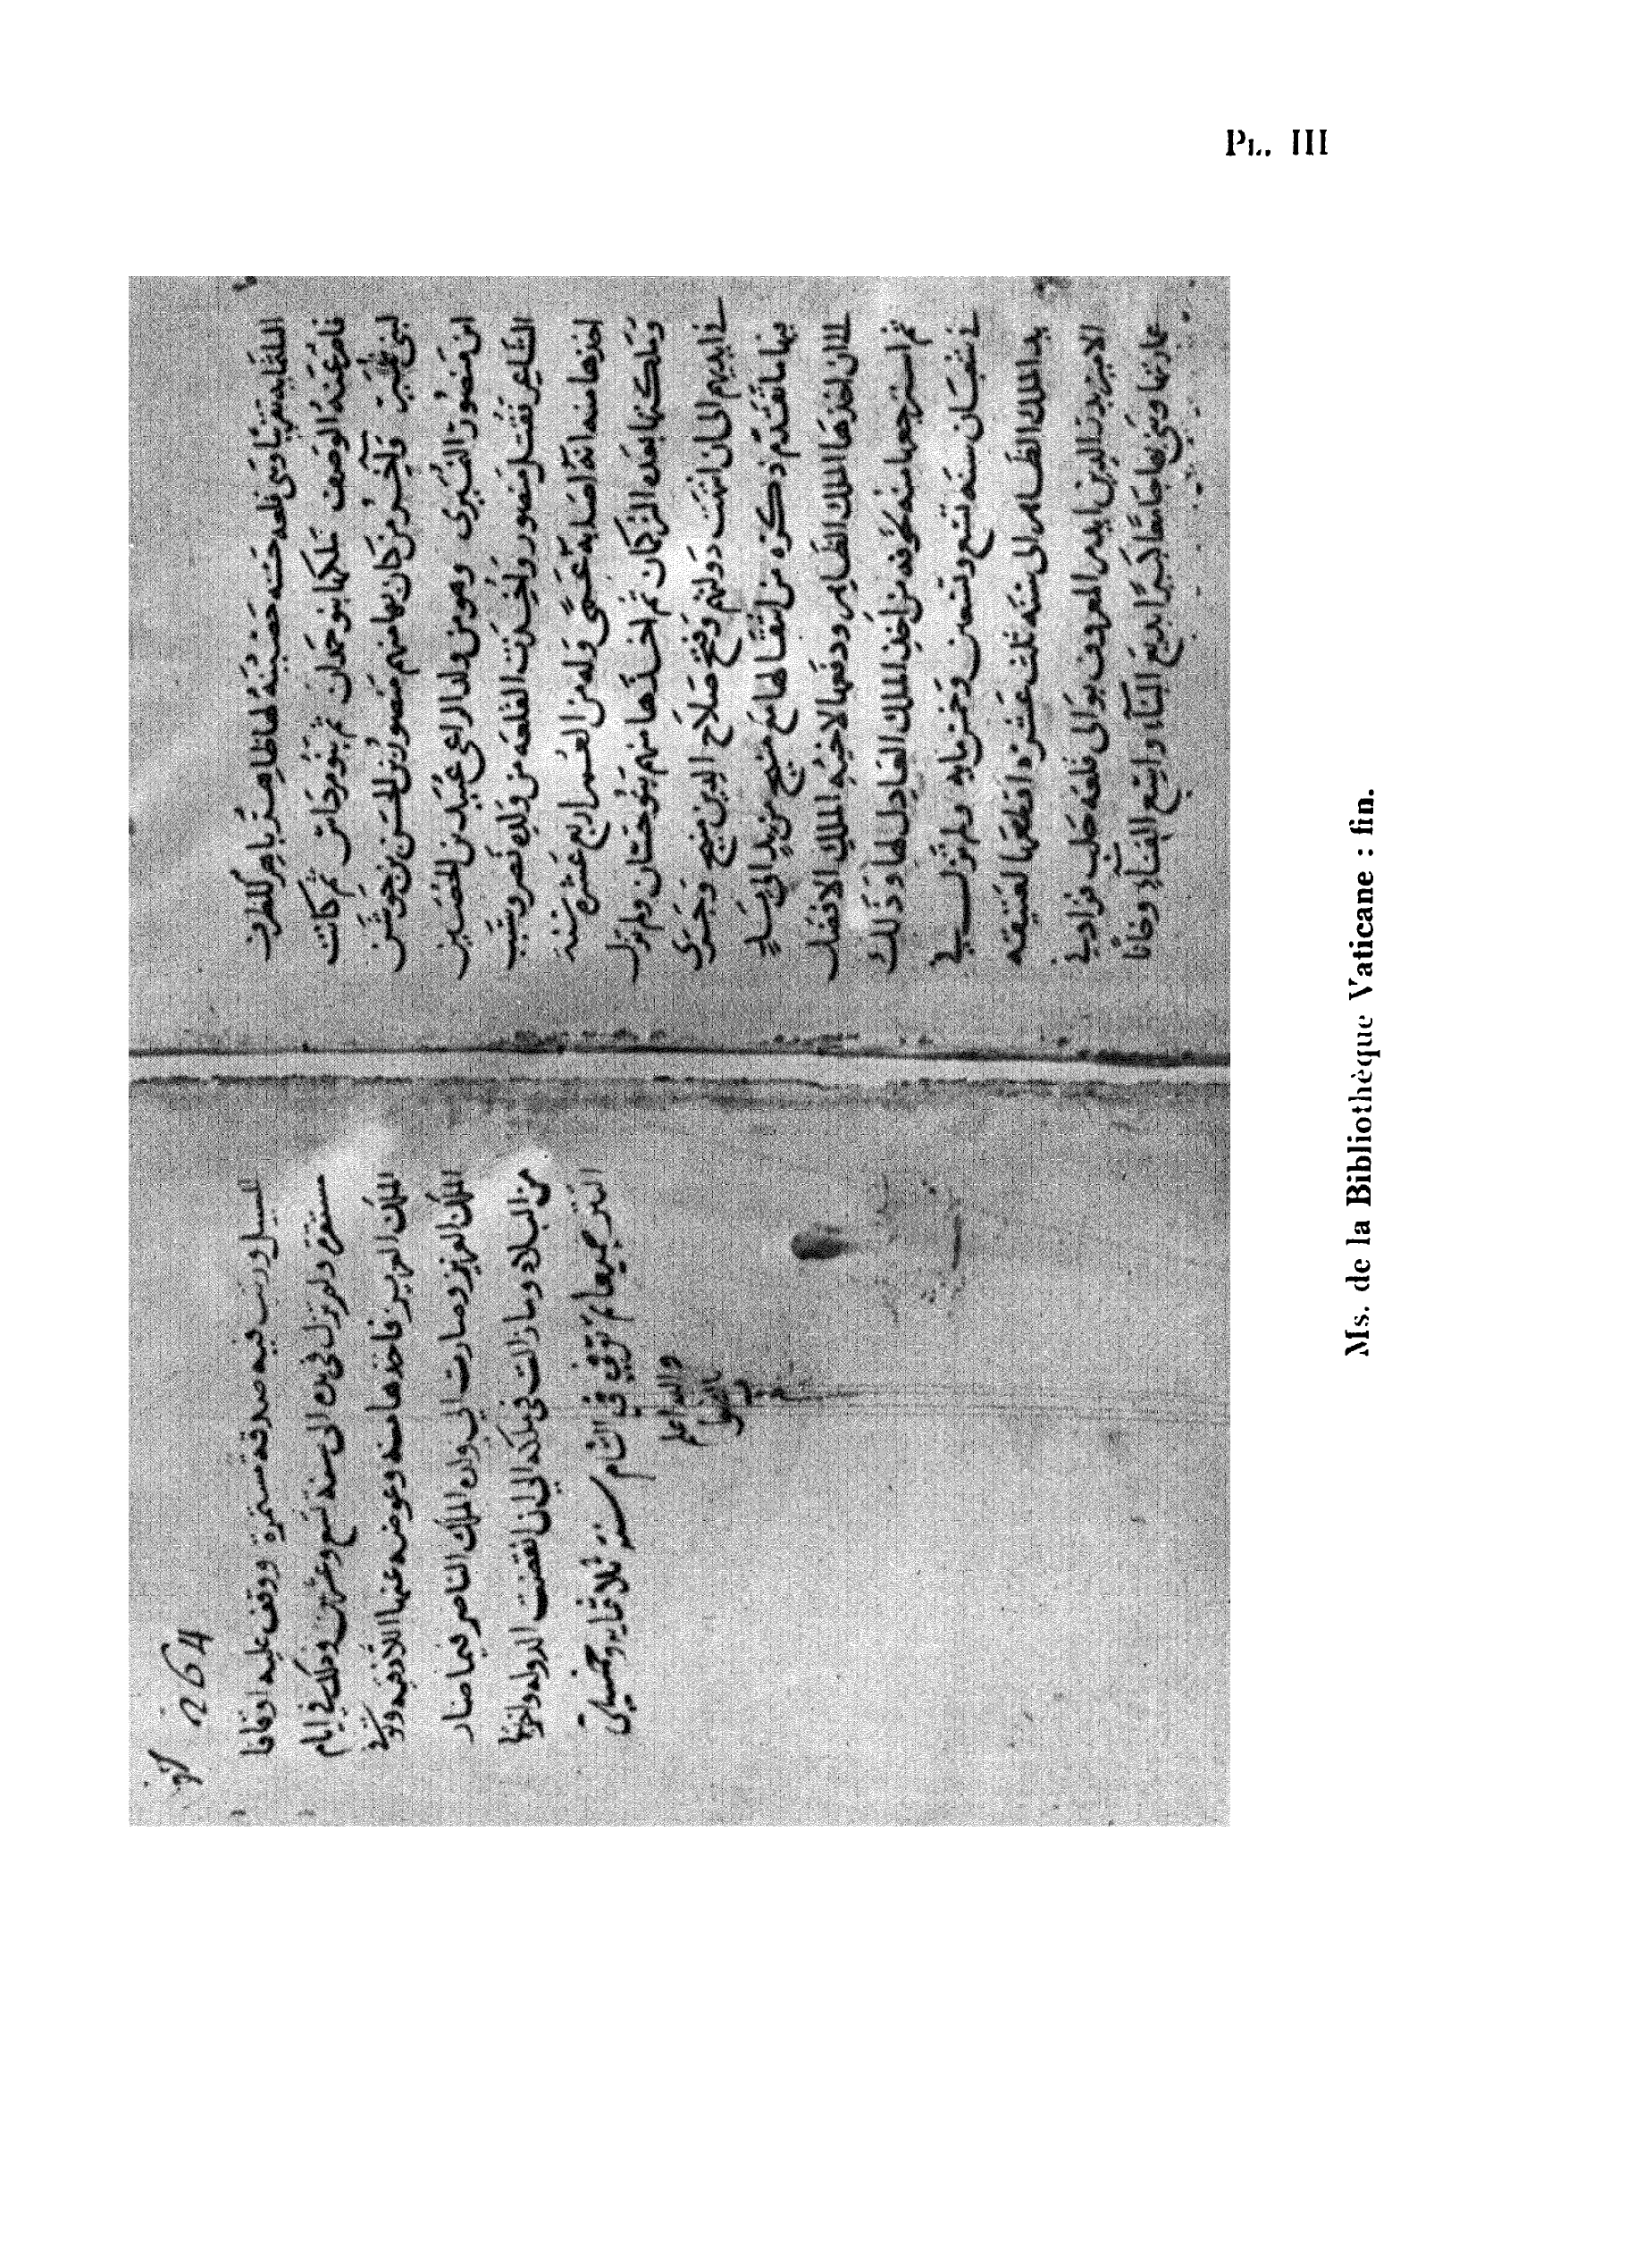 PL. III
الثمانية تقريبا وهي قلعة حسنة حصينة لها ظاهر كالظرف
فاضر عند الوصف ملكها بنو حمدان ثم بنو مرداس ثم كانت
لبني نمير وآخر من كان بها منهم منصور بن الحسن بن جوشن
ابن منصور النميري وهو من ولد الراعي عبيد بن الحصين
الشاعر فقتل منصور واخذت القلعة من ولده نصر
اخذها منه اتة اصابه عمى وله من العمر اربع عشرة سنة
وملكها بعده التركمان ثم اخذها منهم بنو حسان ولم تزل
في ايديهم الى ان انتهت دولتهم وفتح صلاح الدين منبج وجرى
فيها ما تقدم ذكره من انتقالها مع منبج من يد الى يد
الى ان اخذها الملك الظاهر ودفعها لاخيه الملك الافضل
ثم استرجعها منه خوفه من اخذ الملك العادل لها وذلك
في شعبان سنة تسع وتسعين وخمسمايه ولم تزل
بيد الملك الظاهر الى سنة ثلث عشرة اقطعها لعتيقه
الامير بدر الدين ايدمر المعروف بوالي قلعة حلب فزاد في
عمارتها وبنى بها جامعا كبيرا بديع البناء واسع الفناء وخانا
264
للسبيل ورتب فيه صدقة مستمرة ووقف عليه اوقافا
مستغرق ولم تزل في يده الى سنة تسع وعشرين وذلك في ايام
الملك العزيز فاخذها منه وعوضه عنها اللاذقية وتوفي
الملك العزيز وصارت الى ولده الملك الناصر فيما صار
من البلاد وما زالت في ملكه الى ان انقضت الدولة واخذها
التتر جميعا ثم توفي في الشام سنة ثلاثمايه وخمسين
والله اعلم
بالصواب
Ms. de la Bibliothèque Vaticane : fin.